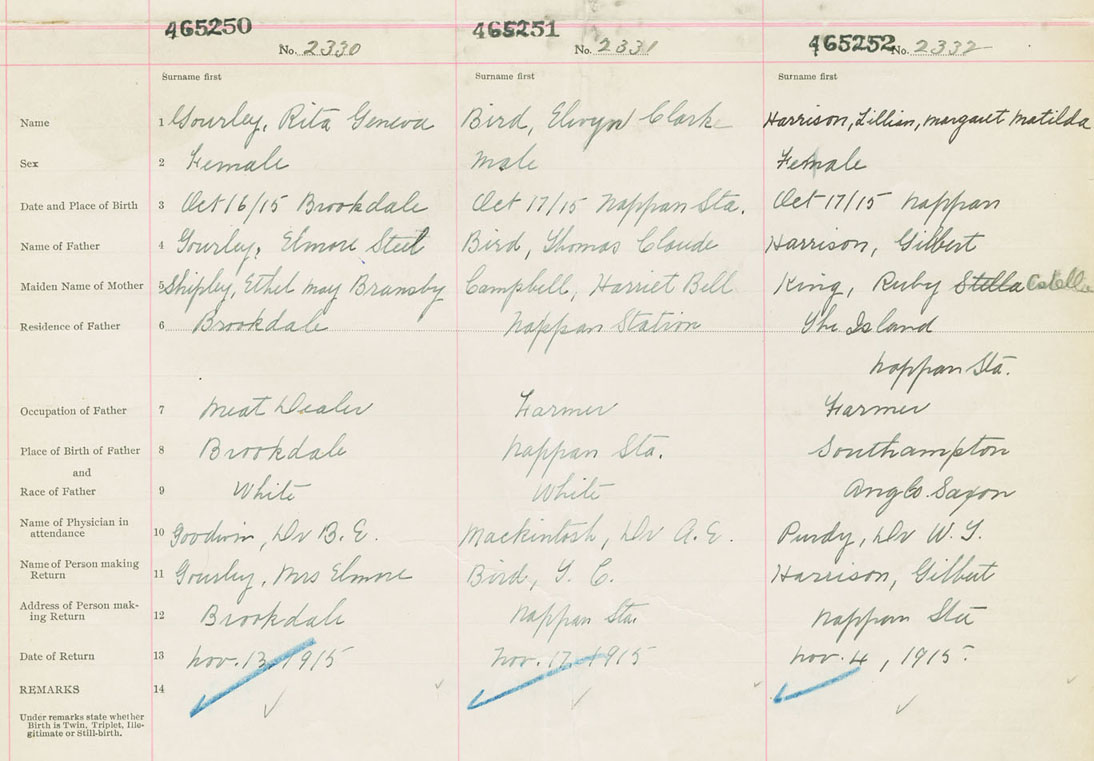 465250 465251 465252
No. 2330 No. 2331 No. 2332
Surname first Surname first Surname first
Name 1 Gourley, Rita Geneva Bird, Elwyn Clarke Harrison, Lillian, Margaret Matilda
Sex 2 Female Male Female
Date and Place of Birth 3 Oct 16/15 Brookdale Oct 17/15 Nappan Sta. Oct 17/15 Nappan
Name of Father 4 Gourley, Elmore Steel Bird, Thomas Claude Harrison, Gilbert
Maiden Name of Mother 5 Shipley, Ethel May Bransby Campbell, Harriet Bell King, Ruby Stella Estella
Residence of Father 6 Brookdale Nappan Station The Island
Nappan Sta.
Occupation of Father 7 Meat Dealer Farmer Farmer
Place of Birth of Father 8 Brookdale Nappan Sta. Southampton
and
Race of Father 9 White White Anglo Saxon
Name of Physician in
attendance 10 Goodwin, Dr B. E. Mackintosh, Dr A. E. Purdy, Dr W. T.
Name of Person making
Return 11 Gourley, Mrs Elmore Bird, T. C. Harrison, Gilbert
Address of Person mak-
ing Return 12 Brookdale Nappan Sta. Nappan Sta
Date of Return 13 Nov. 13, 1915 Nov. 17, 1915 Nov. 4, 1915.
REMARKS 14
Under remarks state whether
Birth is Twin, Triplet, Ille-
gitimate or Still-birth.